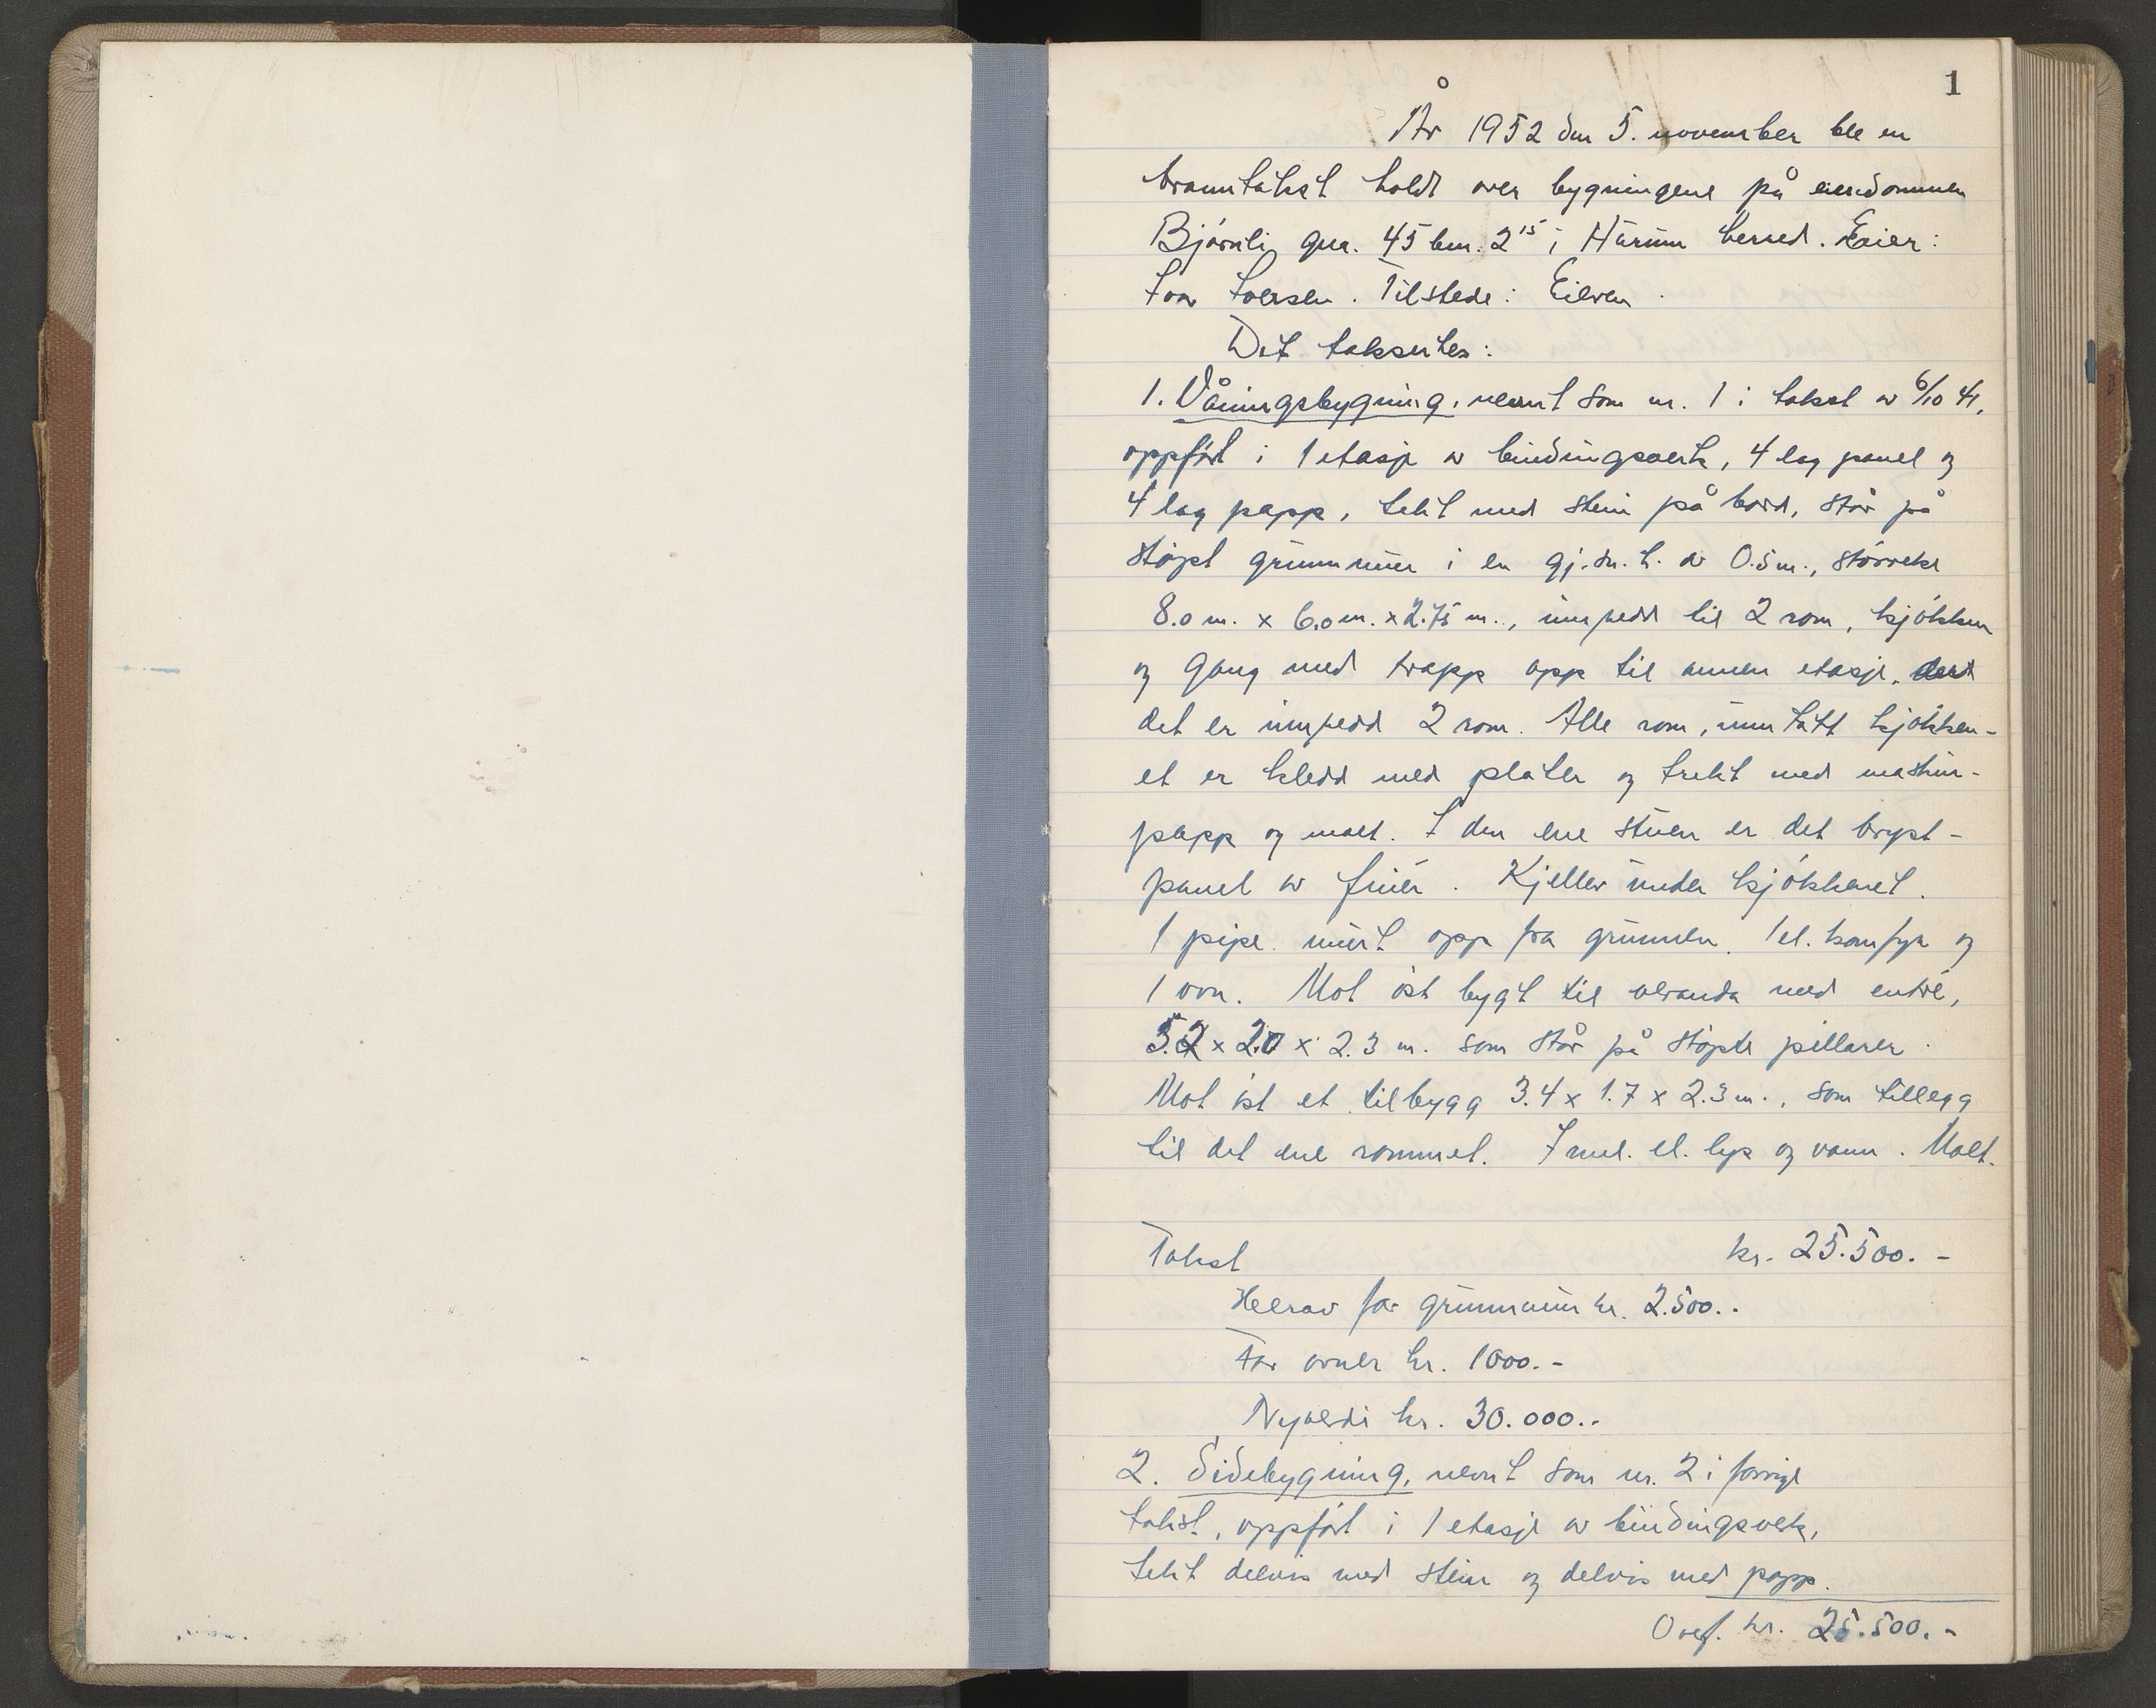 1
År 1952 den 5. november ble en
branntakst holdt over bygningene på eiendommen
Bjørnli gnr. 45 bnr. 2¹⁵ i Hurum herred. Eier:
Ivar Iversen. Tilstede: Eieren.
Det taksertes:
1. Våningsbygning, nevnt som nr. 1 i takst av 6/10 41,
oppført i 1 etasje av bindingsverk, 4 lag panel og
4 lag papp, tekt med stein på bord, står på
støpt grunnmur i en gj.sn.h. av 0.5 m., størrelse
8.0 m. x 6.0 m. x 2.75 m., innredd til 2 rom, kjøkken
og gang med trapp opp til annen etasje, der
det er innredd 2 rom. Alle rom, unntatt kjøkken-
et er kledd med plater og trekt med maskin-
papp og malt. I den ene stuen er det bryst-
panel av finér. Kjeller under kjøkkenet.
1 pipe murt opp fra grunnen. 1 el. komfyr og
1 ovn. Mot øst bygt til veranda med entré,
3.2 x 2.0 x 2.3 m. som står på støpte pillarer.
Mot øst et tilbygg 3.4 x 1.7 x 2.3 m., som tillegg
til det ene rommet. Innl. el. lys og vann. Malt.
Takst kr. 25.500.-
Herav for grunnmur kr. 2.500.-
For ovner kr. 1000.-
Nyverdi kr. 30.000.-
2. Sidebygning, nevnt som nr. 2 i forrige
takst, oppført i 1 etasje av bindingsverk,
tekt delvis med stein og delvis med papp.
Overf. kr. 25.500.-